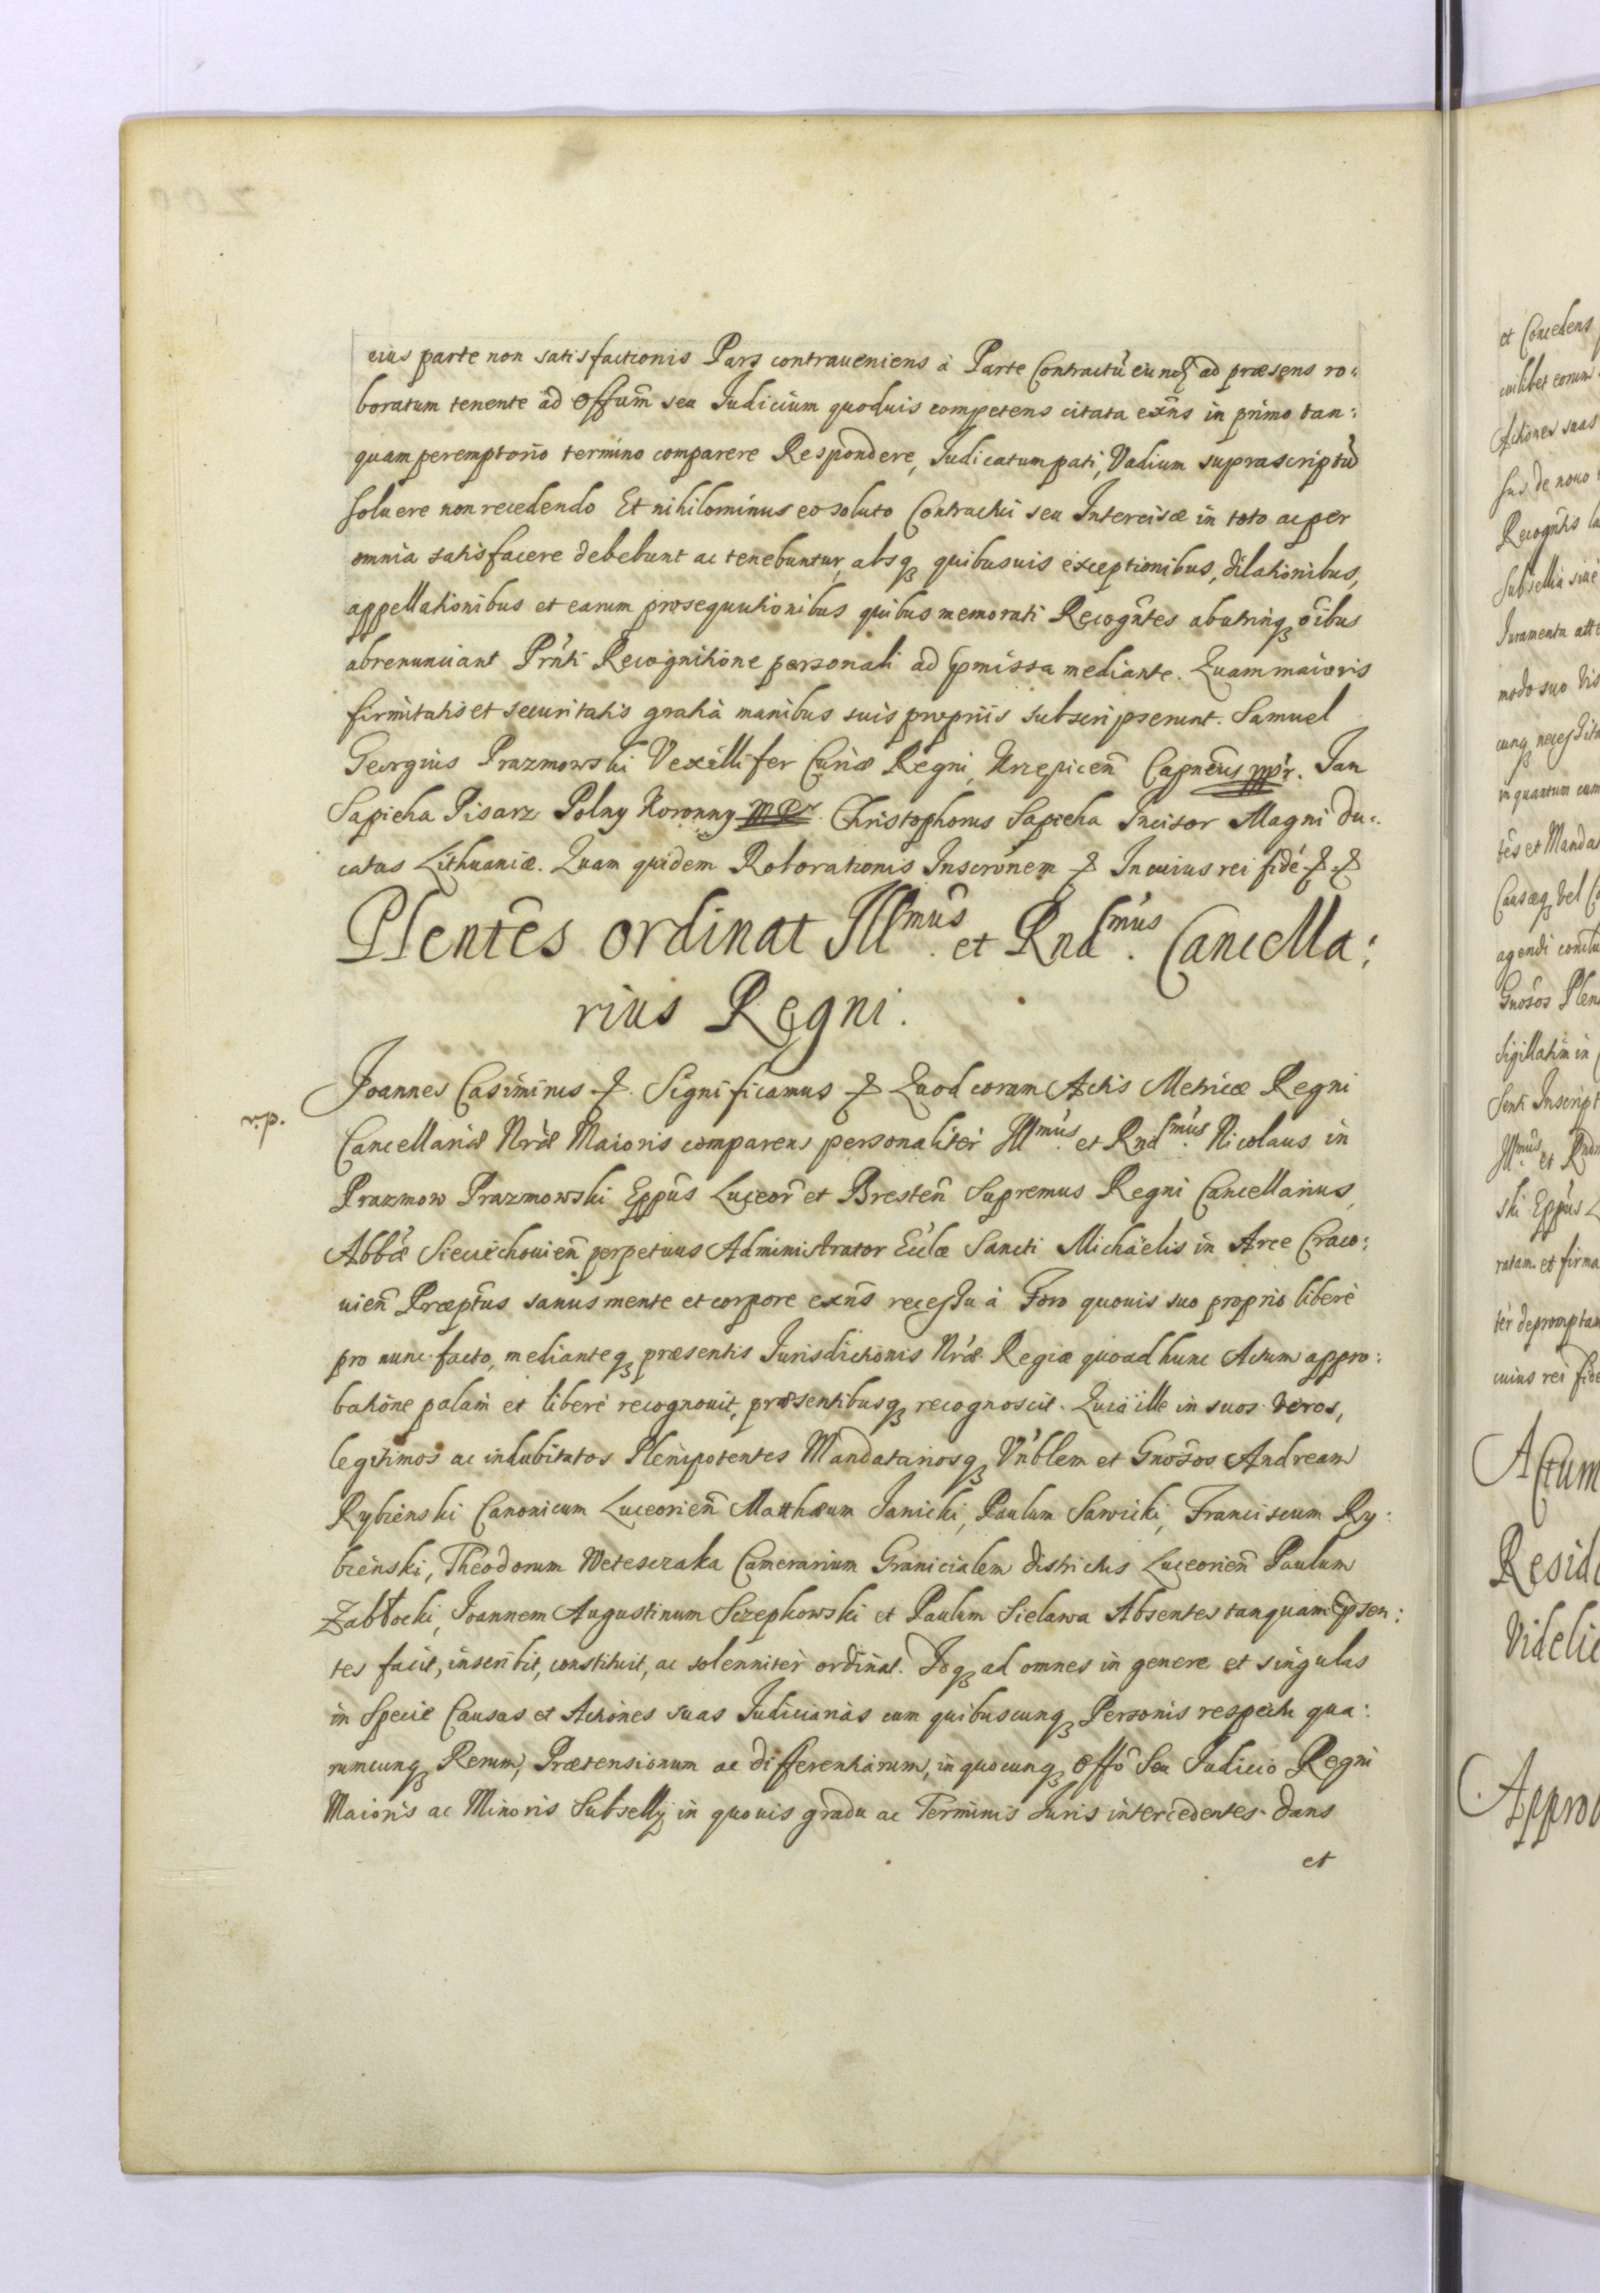 eius parte non satisfactionis Pars contraueniens à Parte Contractũ eund ad præsens ro:
boratum tenente ad Offum̃ seu Judicium quoduis competens citata exñs in primo tan:
quam peremptorio termino comparere Respondere, Judicatum pati, Vadium suprascriptũ
soluere non recedendo Et nihilominus eo soluto Contractui seu Intercisæ in toto ac per
omnia satisfacere debebunt ac tenebuntur, absq quibusuis exceptionibus, dilationibus,
appellationibus et earum prosequutionibus quibus memorati Recogñtes abutrinq oĩbus
abrenunciant Prñti Recognitione personali ad pmissa mediante. Quam maioris
firmitatis et securitatis gratiâ manibus suis proprijs subscripserunt. Samuel
Georgius Prazmowski Vexillifer Curiæ Regni, Krzepiceñ Capneus mpr. Jan
Sapieha Pisarz Polny Koronny mpr. Christophorus Sapieha Incisor Magni Du:
catus Lithuaniæ. Quam quidem Roborationis Inscrõnem & In cuius rei fidẽ & &
Plentẽs ordinat Illmũs. et Rndmũs. Cancella:
rius Regni.
v.p.
Joannes Casimirus & Significamus & Quod coram Actis Metricæ Regni
Cancellariæ Nræ Maioris comparens personaliter Illmus. et Rndmus. Nicolaus in
Prazmow Prazmowski Eppũs Luceor̃ et Bresteñ Supremus Regni Cancellarius,
Abbæ Sieciechouieñ perpetuus Administrator Ecclæ Sancti Michäelis in Arce Craco:
uieñ Præptus sanus mente et corpore exñs recessu à Foro quouis suo proprio liberè
pro nunc facto, medianteq præsentis Jurisdictionis Nræ Regiæ quoad hunc Actum appro:
batione palam et liberè recognouit, præsentibusq recognoscit. Quia ille in suos veros,
legitimos ac indubitatos Plenipotentes Mandatariosq Vñblem et Gnosos Andream
Rybienski Canonicum Luceorieñ Matthæum Janicki, Paulum Sawicki, Franciscum Ry:
bienski, Theodorum Wereszczaka Camerarium Granicialem districtus Luceorieñ Paulum
Zabłocki, Joannem Augustinum Szczepkowski et Paulum Sielawa Absentes tanquam psen:
tes facit, inscribit, constituit, ac solenniter ordinat. Idq ad omnes in genere et singulas
in Specie Causas et Actiones suas Judiciarias cum quibuscunq Personis respectu qua:
rumcunq Rerum, Prætensionum ac differentiarum, in quocunq Offo Seu Judicio Regni
Maioris ac Minoris Subsellij in quouis gradu ac Terminis Juris intercedentes. Dans
et
et Concedens
cuilibet eorum
Actiones suas
Jus de nouo
Recogñtis
Subsellia siue
Juramenta
modo suo
cunq necessita
in quantum eum
tes et Manda
Causæq vel
agendi
Gnosos Plen
sigillatim in
Senti Inscript
Illmus et Rndm
ski Eppus
ratam et firma
ter depromptam
cuius rei fide
Actum
Reside
Videlic
Approb